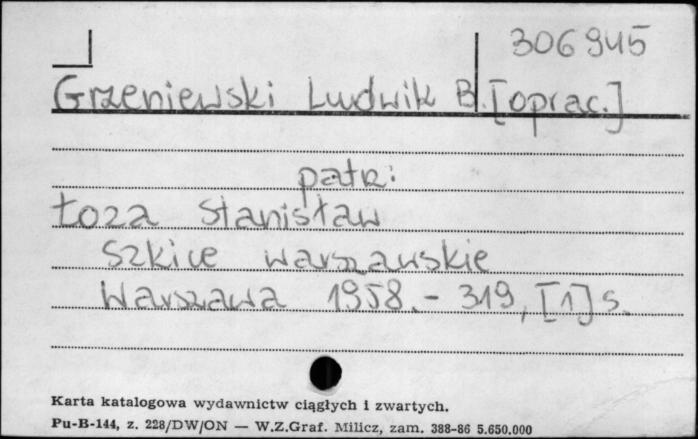 306945
Grzeniewski Ludwik B. [oprac.]
patrz:
Łoza Stanisław
Szkice warszawskie
Warszawa 1958.- 319, [1] s.
Karta katalogowa wydawnictw ciągłych i zwartych.
Pu-B-144, z. 228/DW/ON — W.Z.Graf. Milicz, zam. 388-86 5.650.000